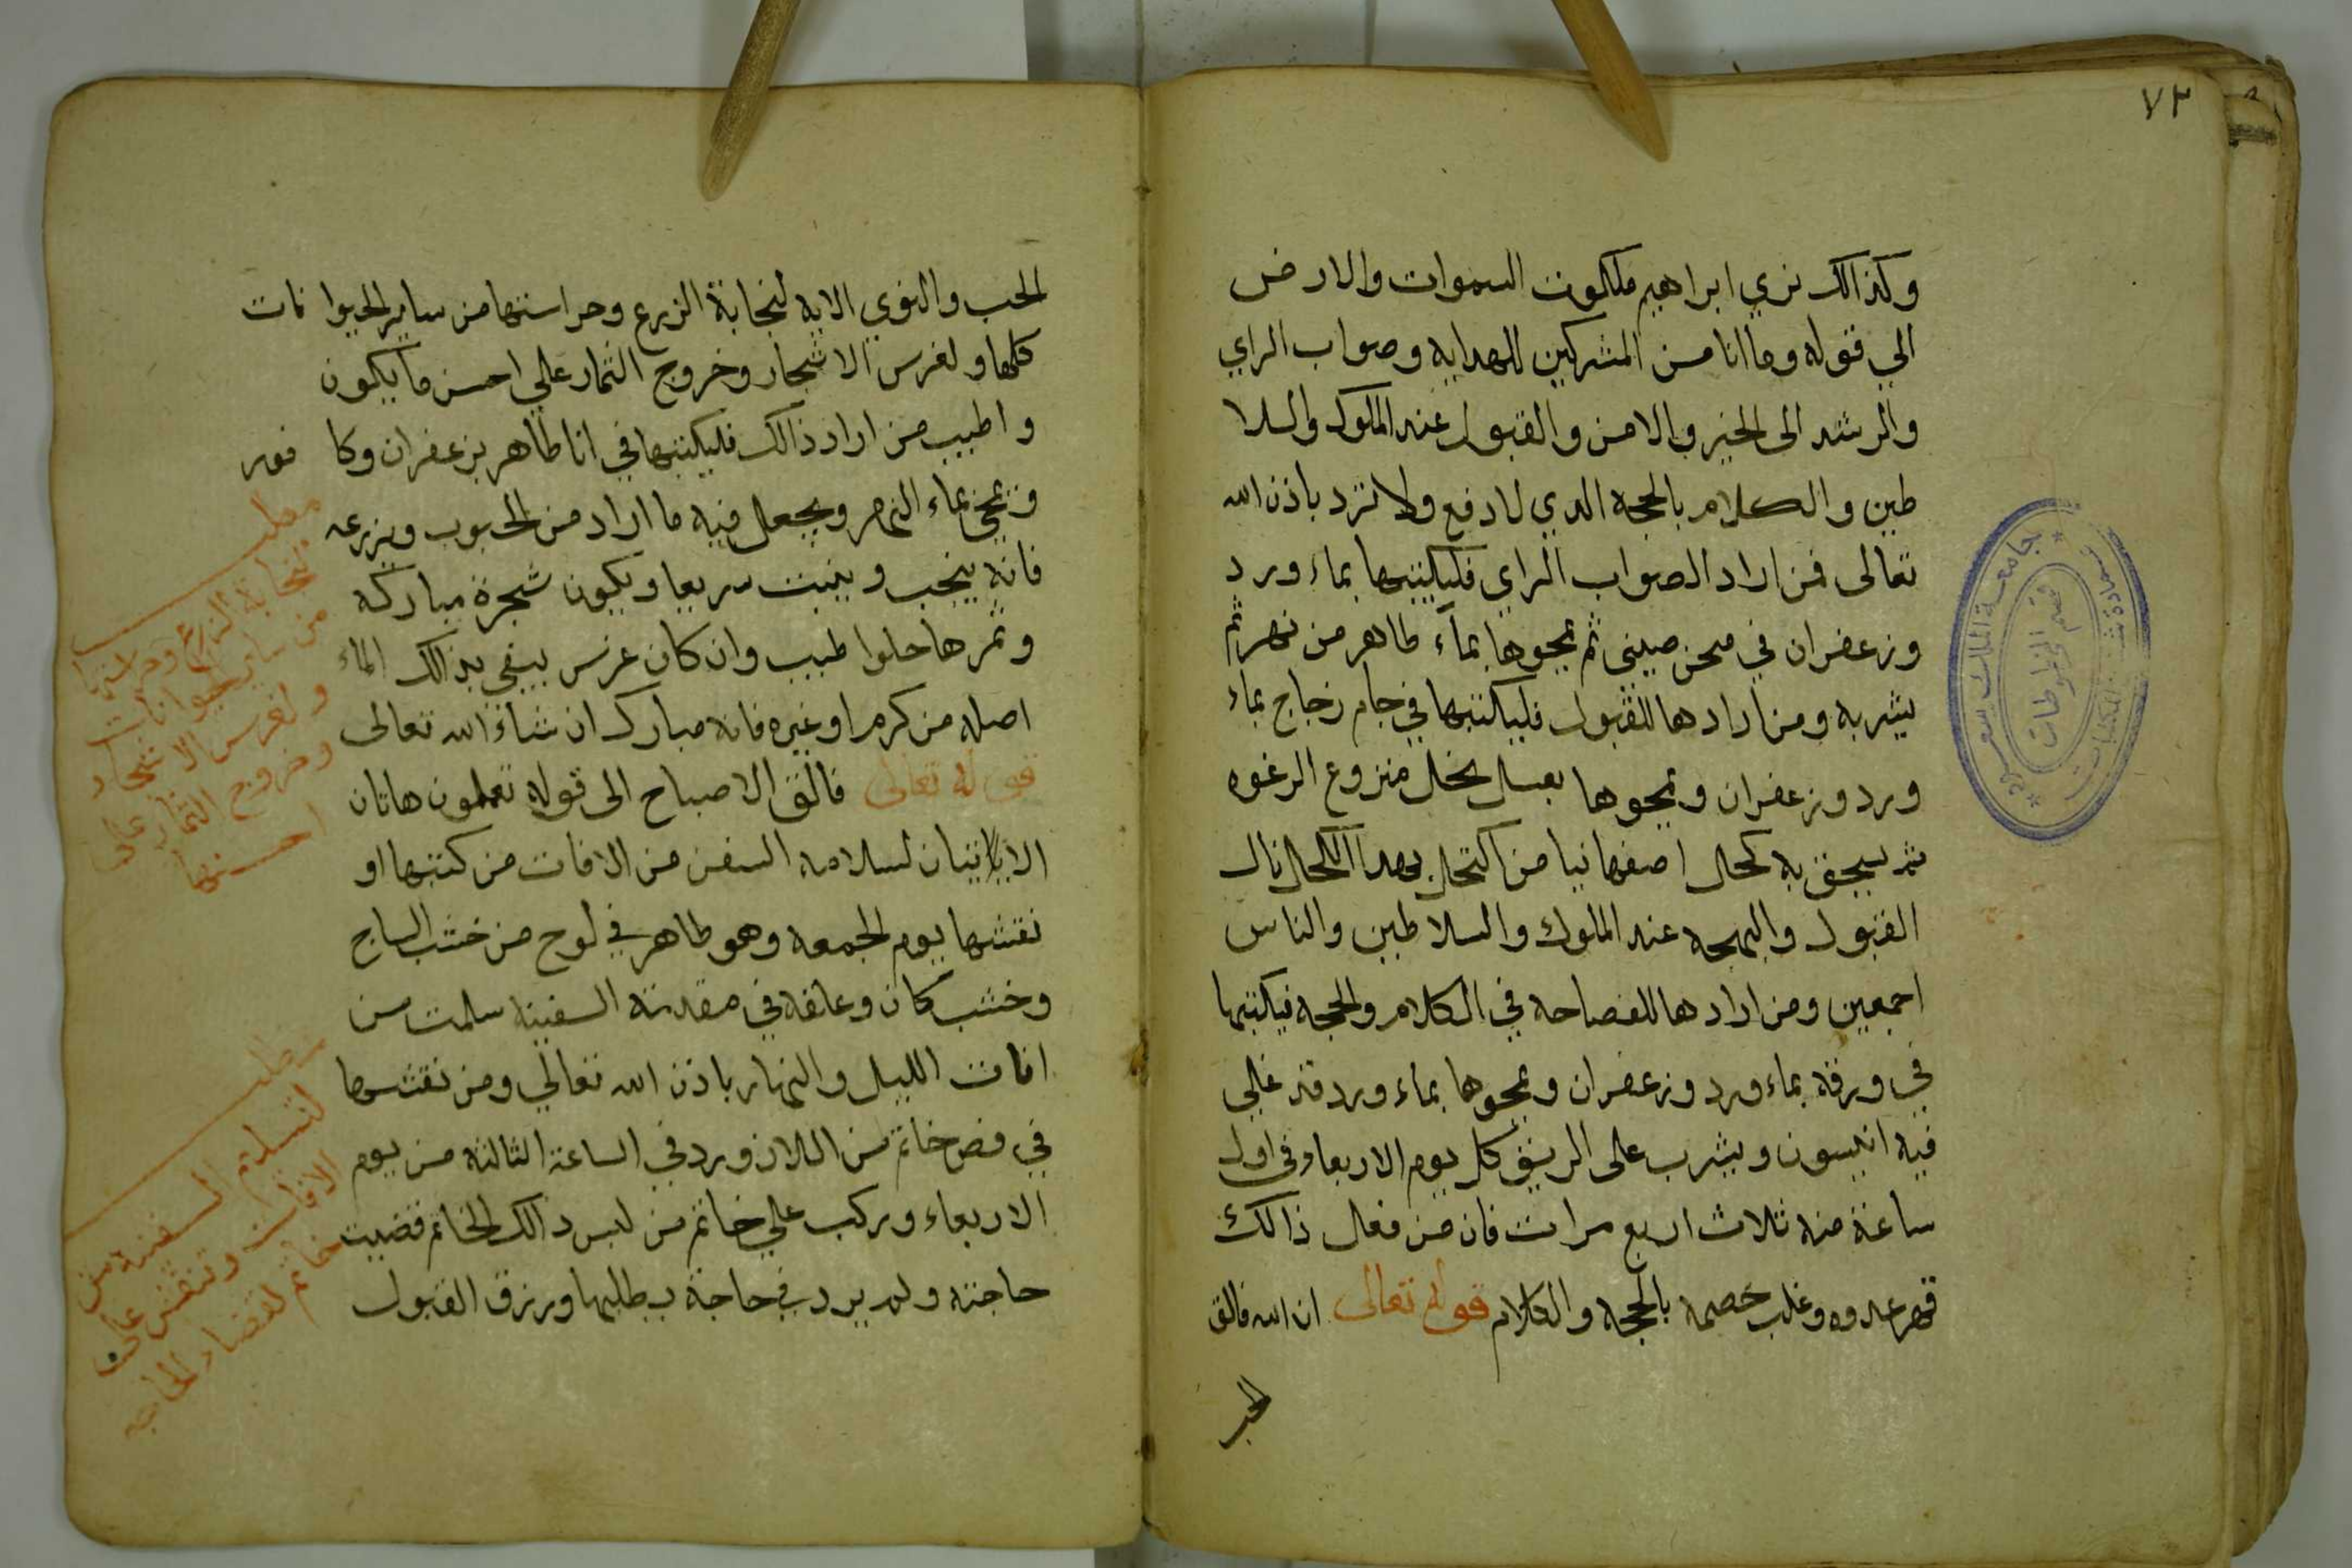 ٧٢
وكذالك نري ابراهيم ملكوت السموات والارض
الي قوله وما انا من المشركين للهدايه وصواب الراي
والرشد الى الخير والامن والقبول عند الملوك والسلا
طين والكلام بالحجه الدي لا دفع ولا ترد باذن الله
تعالى فمن اراد الصواب الراي فليكتبها بماء ورد
وزعفران في صحن صيني ثم يمحوها بمآء طاهر من نهر ثم
يشربه ومن ارادها للقبول فليكتبها في جام زجاج بماء
ورد وزعفران ويمحوها بعسل نحل منزوع الرغوه
ثم يسحق به كحل اصفهانيا من اكتحل بهدا الكحل نال
القبول والبهجه عند الملوك والسلاطين والناس
اجمعين ومن ارادها للفصاحه في الكلام والحجه فيكتبها
في ورقه بماء ورد وزعفران ويمحوها بماء ورد قد غلي
فيه انيسون ويشرب على الريق كل يوم الاربعاء في اول
ساعة منه ثلاث اربع مرات فان من فعل ذالك
قهر عدوه وغلب خصمه بالحجه والكلام قوله تعالى ان الله فالق
الحب
جامعة الملك سعود
قسم المخطوطات
عمادة شئون المكتبات
الحب والنوي الايه لنجابة الزرع وحراستها من ساير الحيوا نات
كلها ولغرس الاشجار وخروج الثمار علي احسن ما يكون
واطيب من اراد ذالك فليكتبها في انا طاهر بزعفران وكا فور
وتمحي بماء النهر ويجعل فيه ما اراد من الحبوب ويزرعه
فانه ينجب وينبت سريعا ويكون شجرة مباركه
وثمرها حلوا طيب وان كان غرس يسقي بذالك الماء
اصله من كرم او غيره فانه مبارك ان شاء الله تعالى
قوله تعالى فالق الاصباح الى قوله تعلمون هاتان
الايتان لسلامه السفن من الافات من كتبها او
نقشها يوم الجمعه وهو طاهر في لوح من خشب الساج
وخشب كان وعلقه في مقدمة السفينه سلمت من
افات الليل والنهار باذن الله تعالي ومن نقشها
في فص خاتم من اللازورد في الساعة الثالثه من يوم
الاربعاء وركب علي خاتم من لبس دالك الخاتم قضيت
حاجته ولم يرد في حاجة يطلبها ورزق القبول
مطلب
لنجابة الزرع وحراستها
من ساير الحيوانات
ولغرس الاشجار
وخروج الثمار على
احسنها
مطلب
لتسليم السفينه من
الافات وتنقش على
خاتم لقضاء الحاجه